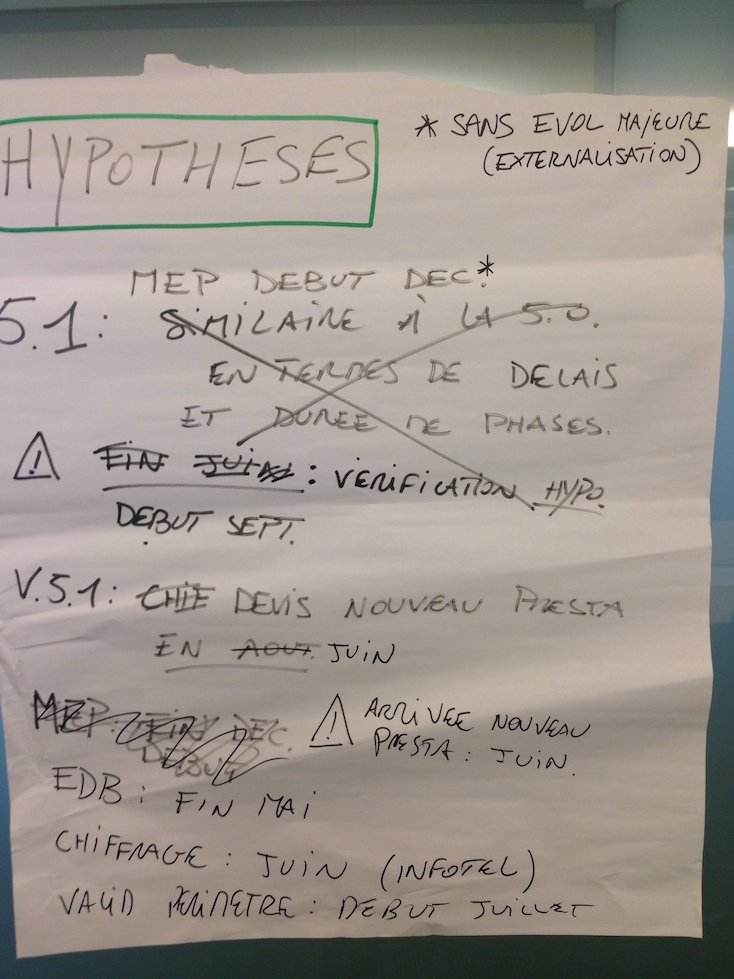 HYPOTHESES
* SANS EVOL MAJEURE
(EXTERNALISATION)
MEP DEBUT DEC.*
5.1: SIMILAIRE À LA 5.0.
EN TERMES DE DELAIS
ET DUREE DE PHASES.
⚠ FIN JUIN : VERIFICATION HYPO.
DEBUT SEPT.
V.5.1: CHIF DEVIS NOUVEAU PRESTA
EN AOUT JUIN
MEP: FIN DEC.
DEBUT
⚠ ARRIVEE NOUVEAU
PRESTA: JUIN.
EDB: FIN MAI
CHIFFRAGE: JUIN (INFOTEL)
VALID PERIMETRE: DEBUT JUILLET